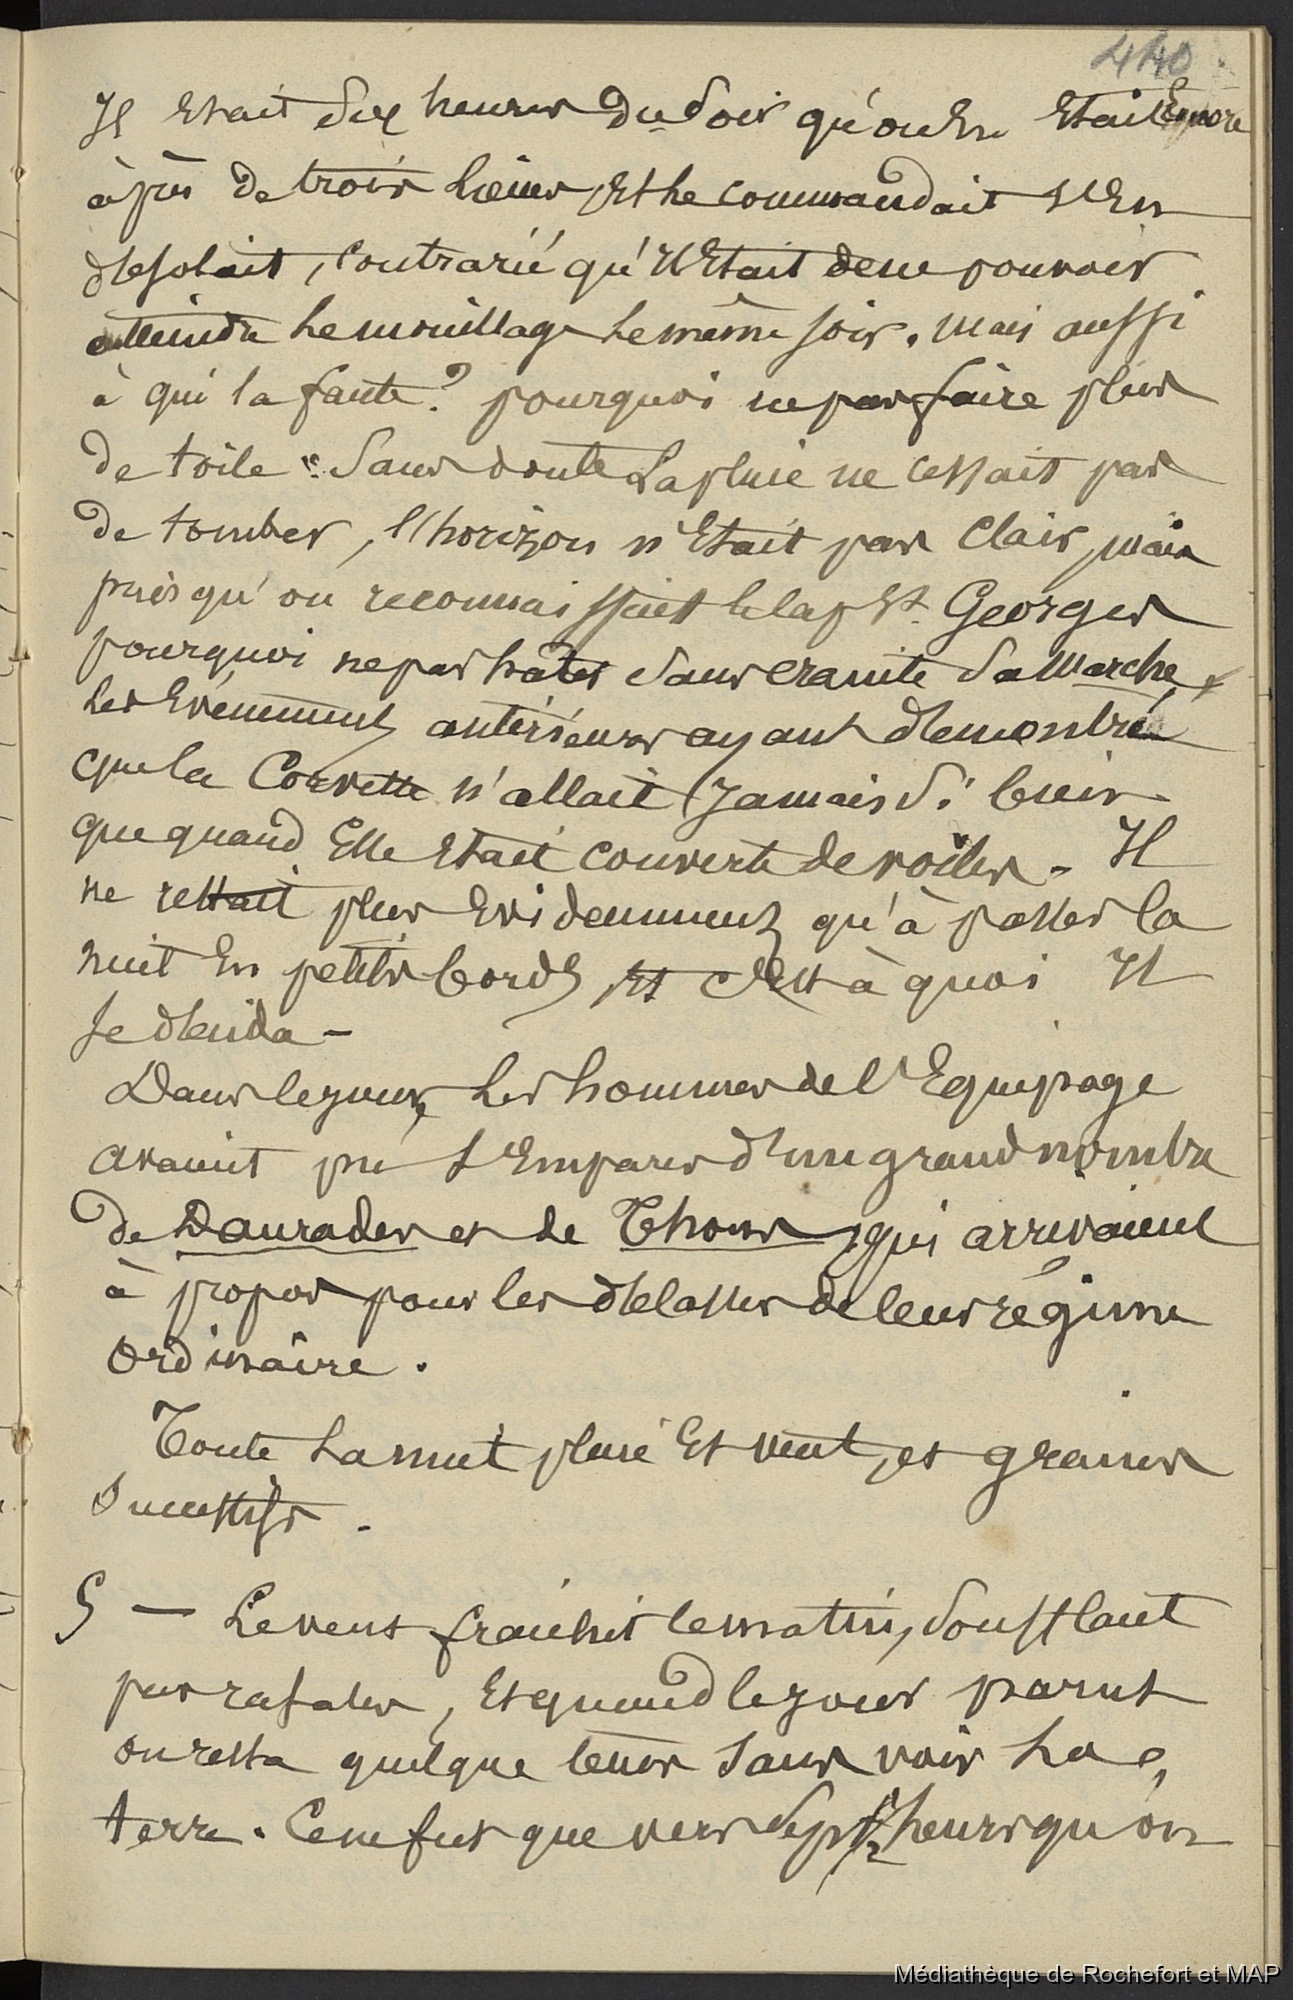 440
Il etait six heures du soir qu'on en etait Encore
à près de trois lieues, et le commandait s'En
désolait, contrarié qu'il Etait de ne pouvoir
atteindre le mouillage le même soir. mais aussi
à qui la faute? pourquoi ne pas faire plus
de toile. Sans doute la pluie ne cessait pas
de tomber, l'horizon n'Etait pas clair, mais
puisqu'on reconnaissait le Cap St. Georges
pourquoi ne pas hâter sans crainte sa Marche,
les Evénements antérieurs ayant démontré
que la Corvette n'allait Jamais si bien
que quand Elle Etait couverte de voiles. Il
ne restait plus Evidemment qu'à passer la
nuit En petits bords, et c'Est à quoi Il
se décida -
Dans le jour, les hommes de l'Equipage
avaient pu s'Emparer d'un grand nombre
de Daurades et de Thons, qui arrivaient
à propos pour les délasser de leur régime
ordinaire.
Toute la nuit pluie Et vent, et grains
Successifs.
5 — Le vent fraichit le matin, soufflant
par rafales, Et quand le jour parut
on resta quelque tems sans voir la
terre. Ce ne fut que vers sept heures qu'on
Médiathèque de Rochefort et MAP